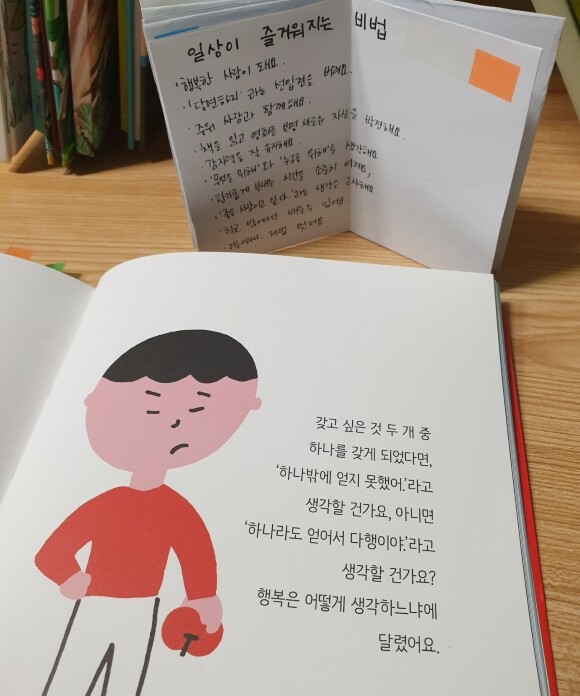 일상이 즐거워지는 비법
· 행복한 사람이 돼요.
· '당연하지' 라는 선입견을 버려요.
· 주위 사람과 함께해요.
· 책을 읽고 영화를 보며 새로운 자신을 발견해요.
· 긴장감을 잘 유지해요.
· '무엇을 위해'와 '누구를 위해'를 생각해요.
· 한가롭게 보내는 시간을 소중히 여겨요.
· '죽은 사람이고 싶다.' 라는 생각은 근사해요.
· 학교 밖에서도 배울 수 있어요.
제법 멋져요.
갖고 싶은 것 두 개 중
하나를 갖게 되었다면,
'하나밖에 얻지 못했어.'라고
생각할 건가요, 아니면
'하나라도 얻어서 다행이야.'라고
생각할 건가요?
행복은 어떻게 생각하느냐에
달렸어요.